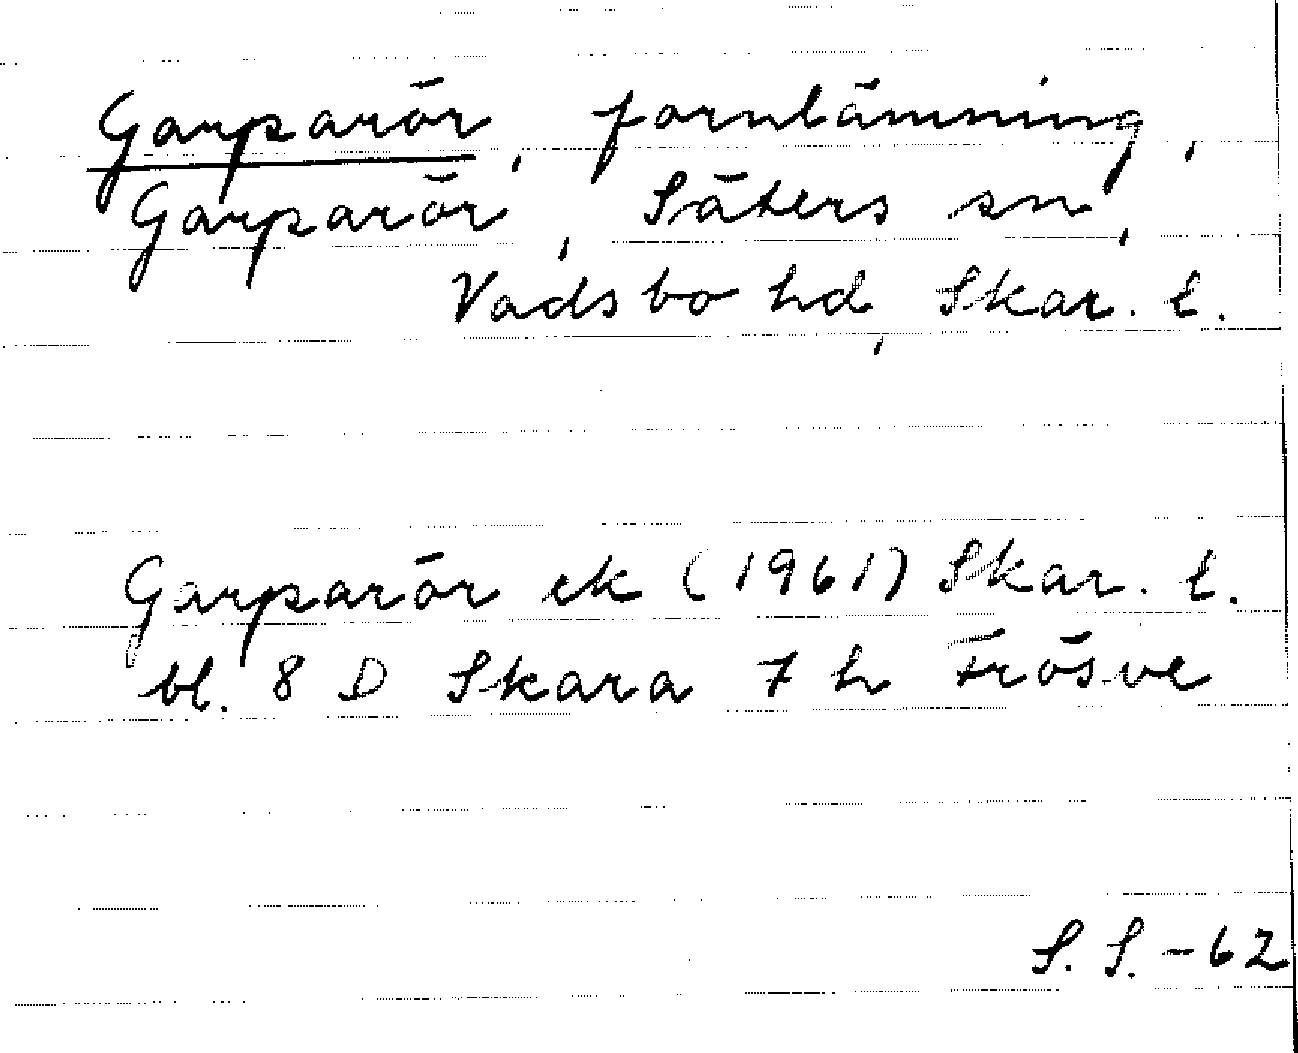 Garparör, fornlämning,
Garparör, Säters sn,
Vadsbo hd, Skar. l.
Garparör ek (1961) Skar. l.
bl. 8 D Skara 7 h Frösve
S. S. -62